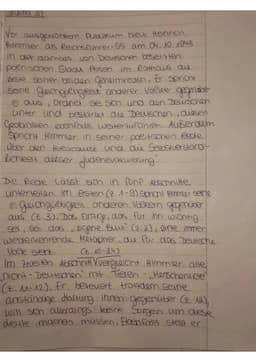 Vor ausgewähltem Publikum hielt Heinrich
Himmler als Reichsführer-SS am 04.10.1943
in der damals von Deutschen besetzten
polnischen Stadt Posen im Rathaus die
erste seiner beiden Geheimreden. Er spricht
seine Gleichgültigkeit anderer Völker gegenüb-
er aus, ordnet sie sich und den Deutschen
unter und bestärkt die Deutschen, diesen
Gedanken ebenfalls weiterzuführen. Außerdem
spricht Himmler in seiner politischen Rede
über den Holocaust und die Selbstverständ-
lichkeit dieser „Judenevakuierung“.
Die Rede lässt sich in fünf Abschnitte
unterteilen. Im ersten (Z. 1-9) spricht Himmler seine
Gleichgültigkeit anderen Völkern gegenüber
aus (Z. 3). Das Einzige, das für ihn wichtig
sei, sei das „eigene Blut“ (Z. 2), eine immer
wiederkehrende Metapher, die für das Deutsche
Volk steht.
Im zweiten Abschnitt vergleicht Himmler alle
„nicht-Deutschen“ mit Tieren - „Menschentiere“
(Z. 11-12). Er beteuert trotzdem seine
anständige Haltung ihnen gegenüber
will sich allerdings keine Sorgen um diese
machen müssen. Ebenfalls stellt er